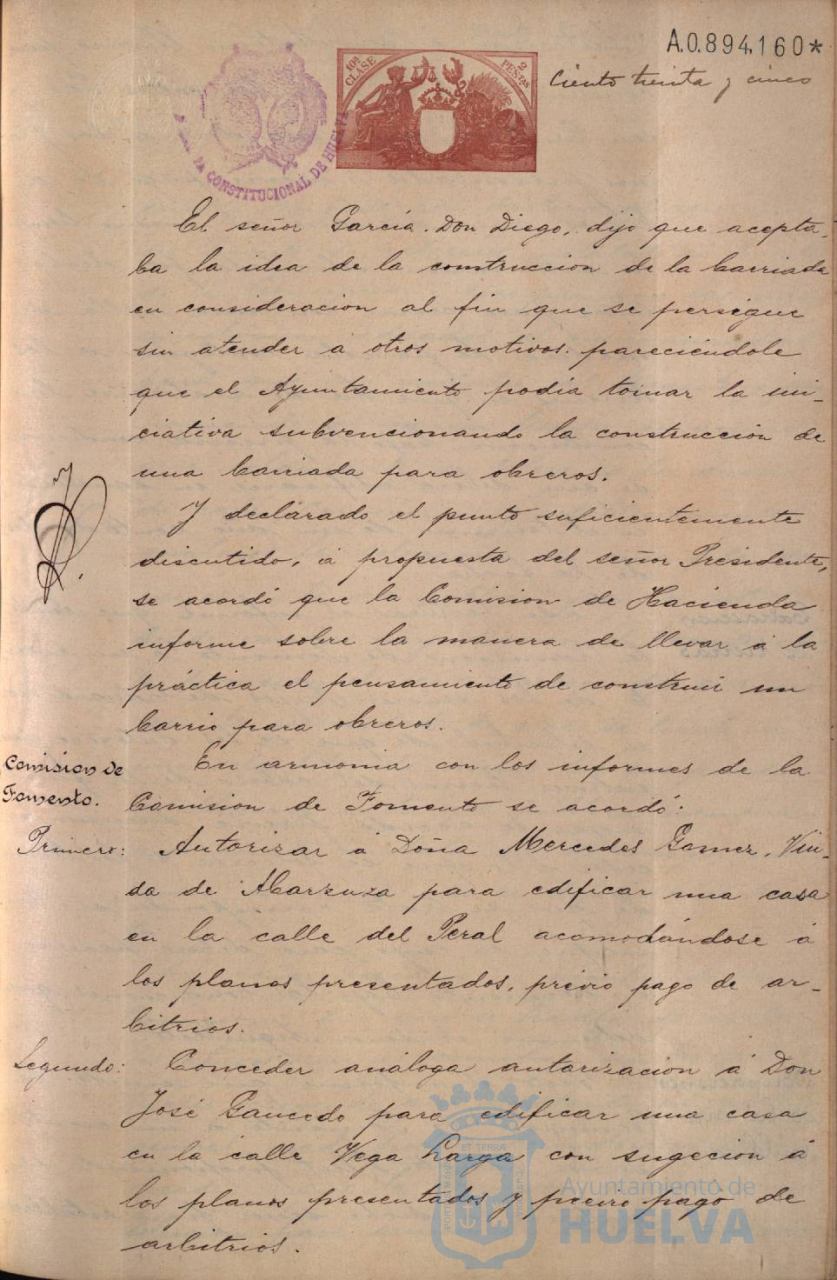 A.0.894,160*
10ª CLASE
2 PESTAS
Ciento treinta y cinco
CONSTITUCIONAL DE HUELVA
El señor García. Don Diego, dijo que acepta-
ba la idea de la construccion de la barriada
en consideracion al fin que se persigue
sin atender á otros motivos. pareciéndole
que el Ayuntamiento podía tomar la ini-
ciativa subvencionando la construccion de
una barriada para obreros.
Y declarado el punto suficientemente
discutido, á propuesta del señor Presidente,
se acordó que la Comision de Hacienda
informe sobre la manera de llevar á la
práctica el pensamiento de construir un
barrio para obreros.
Comision de
Fomento.
En armonia con los informes de la
Comision de Fomento se acordó:
Primero: Autorizar á Doña Mercedes Gomez, Viu-
da de Abarzuza para edificar una casa
en la calle del Peral acomodándose á
los planos presentados, previo pago de ar-
bitrios.
Segundo: Conceder análoga autorizacion á Don
José Saucedo para edificar una casa
en la calle Vega Larga con sugecion á
los planos presentados y previo pago de
arbitrios.
Ayuntamiento de
HUELVA